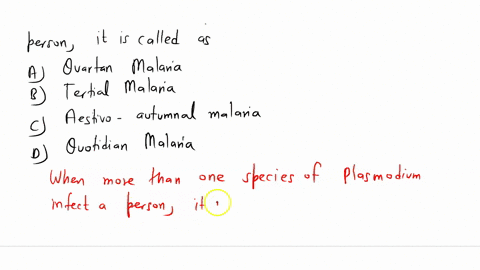 person, it is called as
A) Quartan Malaria
B) Tertial Malaria
C) Aestivo - autumnal malaria
D) Quotidian Malaria
When more than one species of Plasmodium
infect a person, it